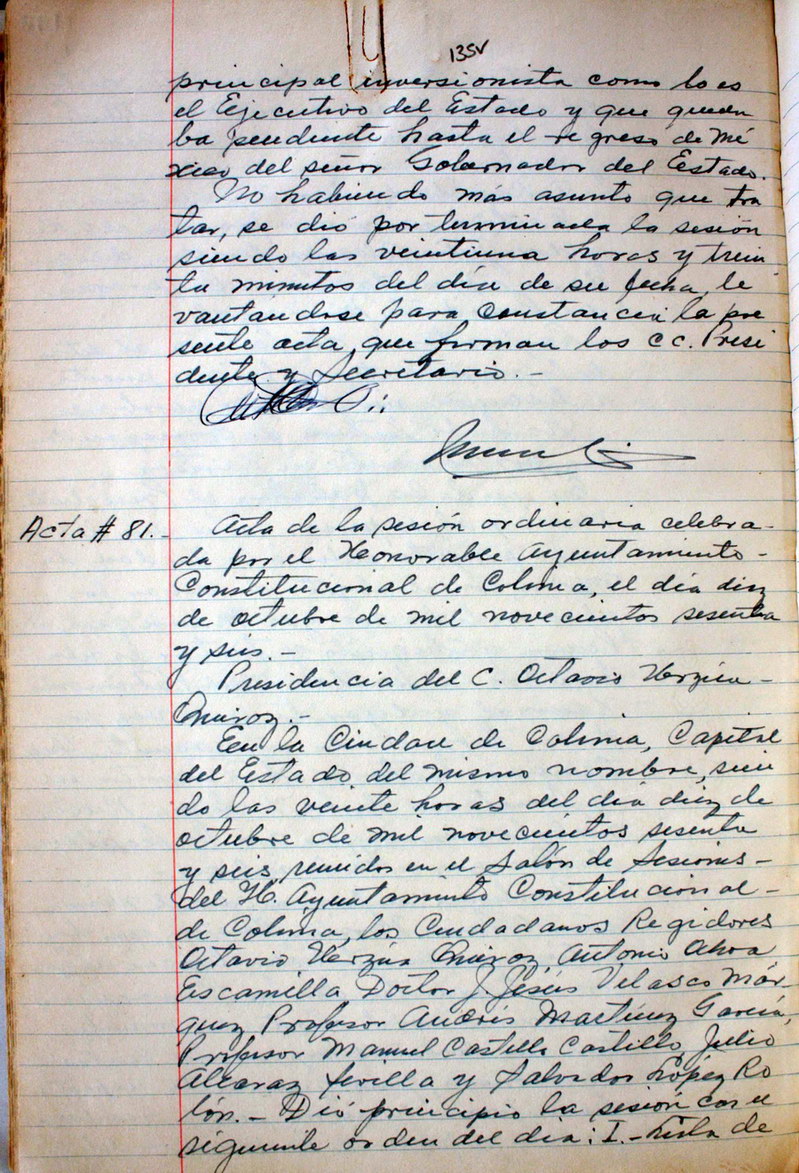 135v
principal inversionista como lo es
el Ejecutivo del Estado y que queda
ba pendiente hasta el regreso de Mé
xico del señor Gobernador del Estado.
No habiendo más asunto que tra
tar, se dió por terminada la sesión
siendo las veintiuna horas y trein
ta minutos del día de su fecha, le
vantandose para constancia la pre
sente acta, que firman los cc. Presi
dente y Secretario.-
Acta # 81.- Acta de la sesión ordinaria celebra-
da por el Honorable Ayuntamiento-
Constitucional de Colima, el día diez
de octubre de mil novecientos sesenta
y seis.-
Presidencia del C. Octavio
Quiroz.-
En la Ciudad de Colima, Capital
del Estado del mismo nombre, sien
do las veinte horas del día diez de
octubre de mil novecientos sesenta
y seis, reunidos en el Salón de Sesiones-
del H. Ayuntamiento Constitucional-
de Colima, los Ciudadanos Regidores
Octavio Quiroz, Antonio
Escamilla Doctor J. Jesús Velasco Már-
quez Profesor Andrés Martínez García,
Profesor Manuel Castell Castillo, Julio
Alcaraz Sevilla y Salvador López Ro
lón.- Dió principio la sesión con el
siguiente orden del dia: I.- Lista de